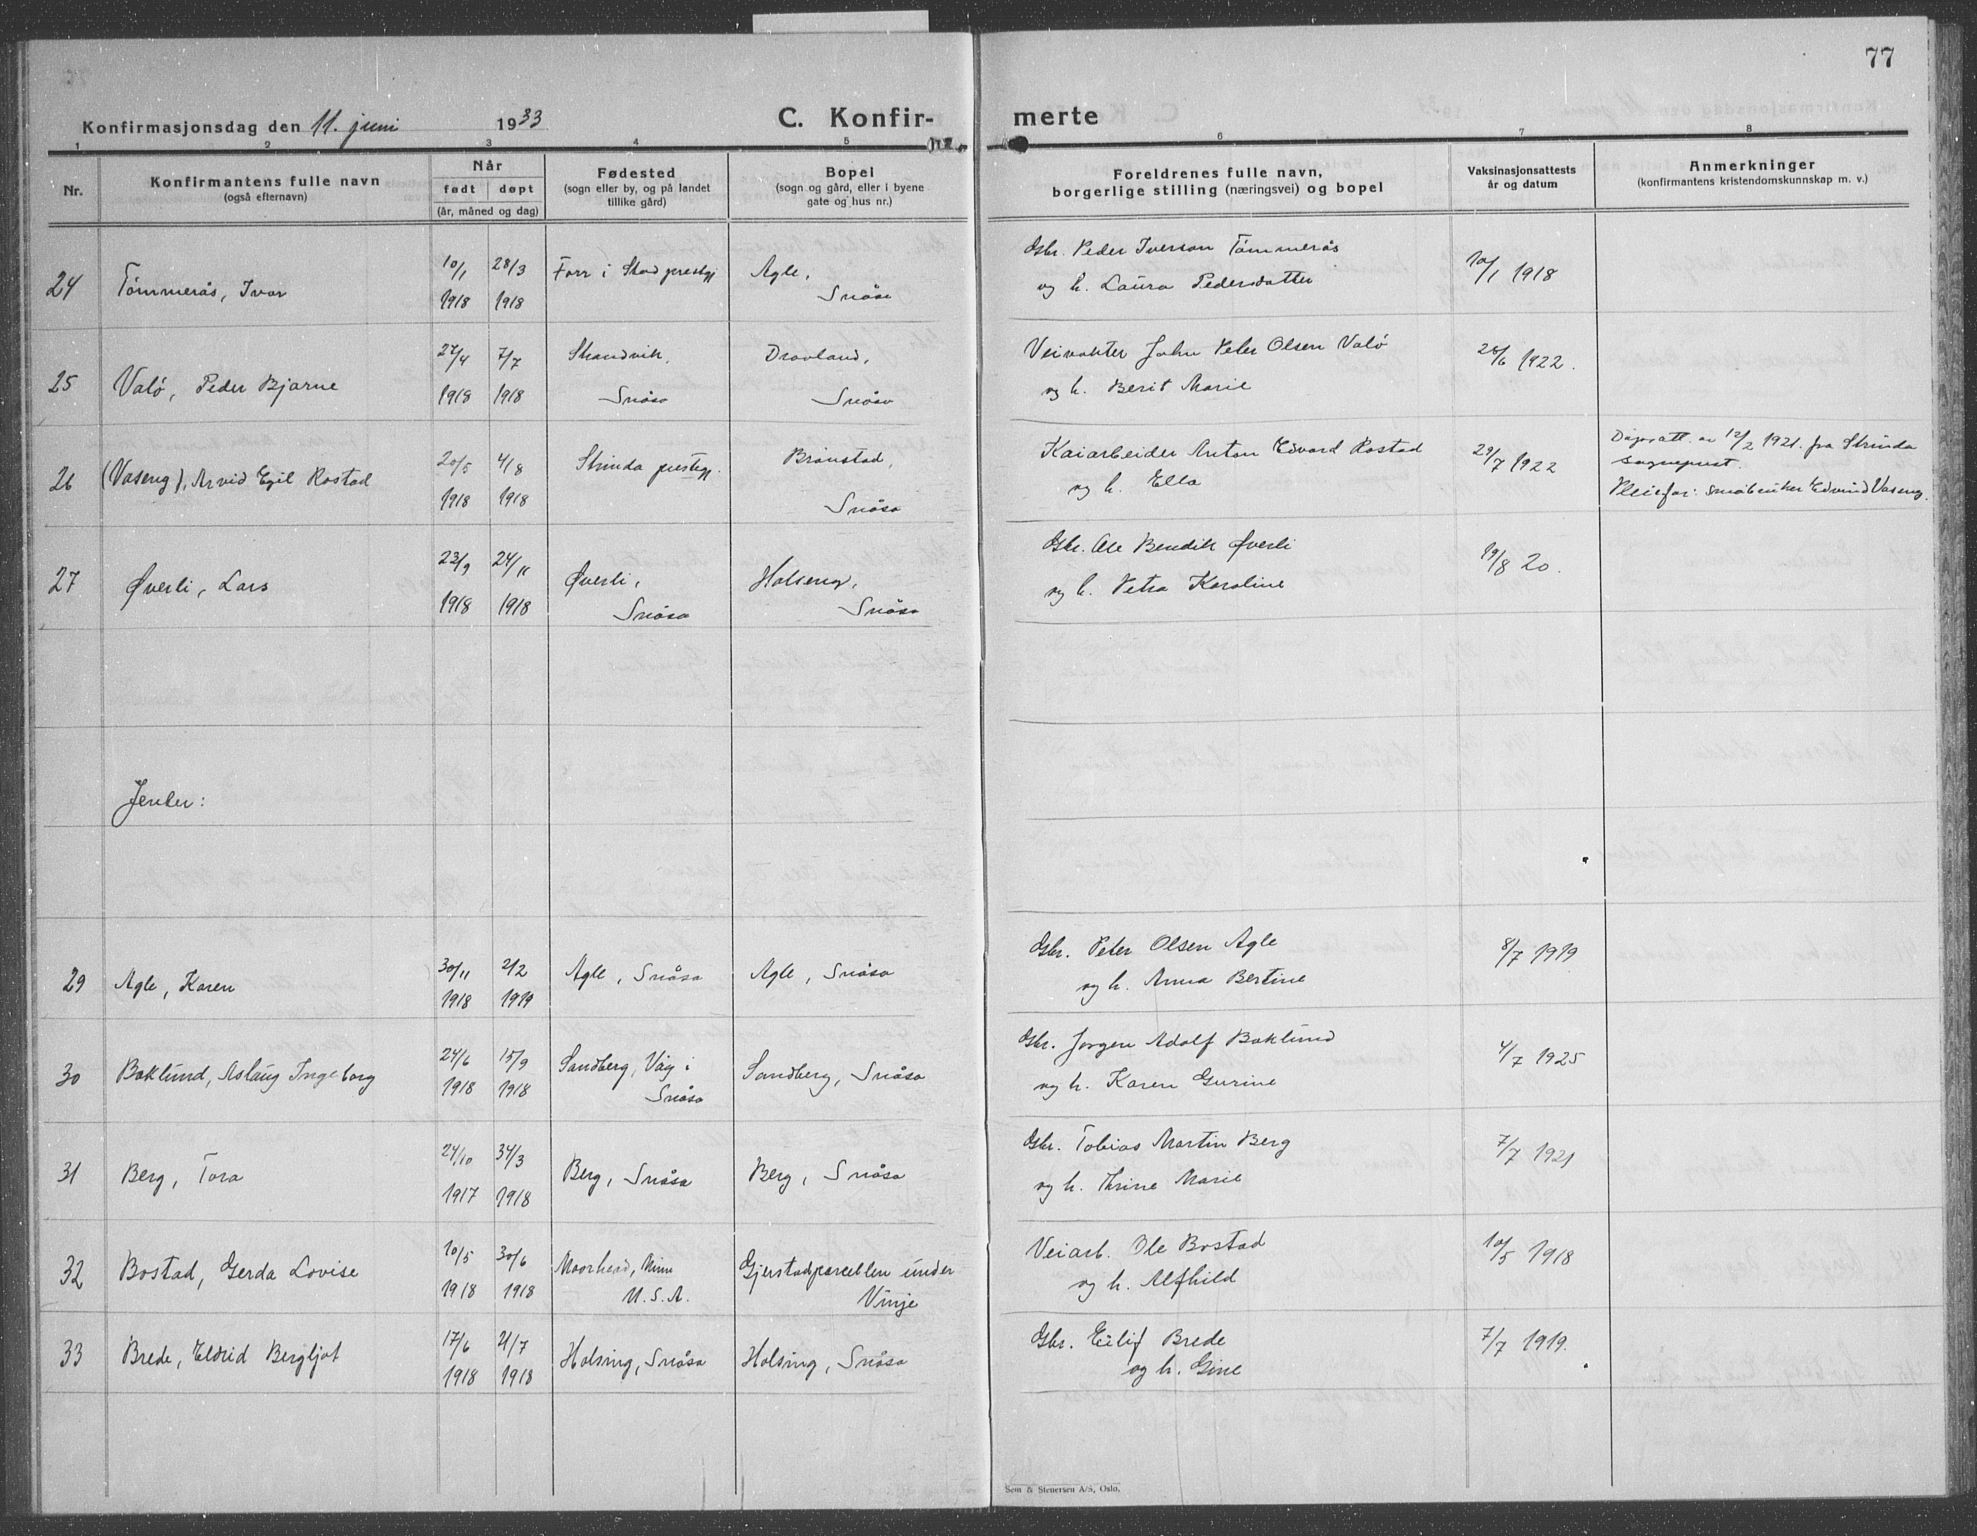 77
Konfirmasjonsdag den 11. juni 1933 C. Konfir- merte
1 2 3 4 5 6 7 8
Nr.
Konfirmantens fulle navn
(også efternavn)
Når
født døpt
(år, måned og dag)
Fødested
(sogn eller by, og på landet
tillike gård)
Bopel
(sogn og gård, eller i byene
gate og hus nr.)
Foreldrenes fulle navn,
borgerlige stilling (næringsvei) og bopel
Vaksinasjonsattests
år og datum
Anmerkninger
(konfirmantens kristendomskunnskap m. v.)
24 Tömmerås, Ivar
10/1 1918
28/3 1918
Forr i Stod prestegj
Agle,
Snåsa
Gbr. Peder Iverson Tömmerås
og h. Laura Pedersdatter
10/1 1918
25 Valö, Peder Bjarne
27/4 1918
7/7 1918
Strandvik,
Snåsa
Dravland,
Snåsa
Veivokter John Peter Olsen Valö
og h. Berit Marie
28/6 1922.
26 (Vaseng), Arvid Egil Rostad
20/5 1918
4/8 1918
Strinda prestegj.
Brönstad,
Snåsa
Kaiarbeider Anton Edvard Rostad
og h. Ella
29/7 1922
Dåpsatt. av 12/2 1921. fra Strinda
sogneprest.
Pleiefar: småbruker Edvind Vaseng.
27 Øverli, Lars
23/9 1918
24/11 1918
Øverli,
Snåsa
Holseng,
Snåsa
Gbr. Ole Bendik Øverli
og h. Petra Karoline
19/8 20.
Jenter:
29 Agle, Karen
30/11 1918
2/2 1919
Agle, Snåsa
Agle, Snåsa
Gbr. Peter Olsen Agle
og h. Anna Bertine
8/7 1919
30 Baklund, Aslaug Ingeborg
24/6 1918
15/9 1918
Sandberg, Våg i
Snåsa
Sandberg, Snåsa
Gbr. Jorgen Adolf Baklund
og h. Karen Gurine
4/7 1925
31 Berg, Tora
24/10 1917
34/3 1918
Berg, Snåsa
Berg, Snåsa
Gbr. Tobias Martin Berg
og h. Thrine Marie
7/7 1921
32 Bostad, Gerda Lovise
10/5 1918
30/6 1918
Moorhead, Minn
U.S.A.
Gjerstadparcellen under
Vinje
Veiarb. Ole Bostad
og h. Alfhild
10/5 1918
33 Brede, Eldrid Bergljot
17/6 1918
21/7 1918
Holsing, Snåsa
Holsing, Snåsa
Gbr. Eilif Brede
og h. Gine
7/7 1919.
Sem & Stenersen A/S, Oslo.